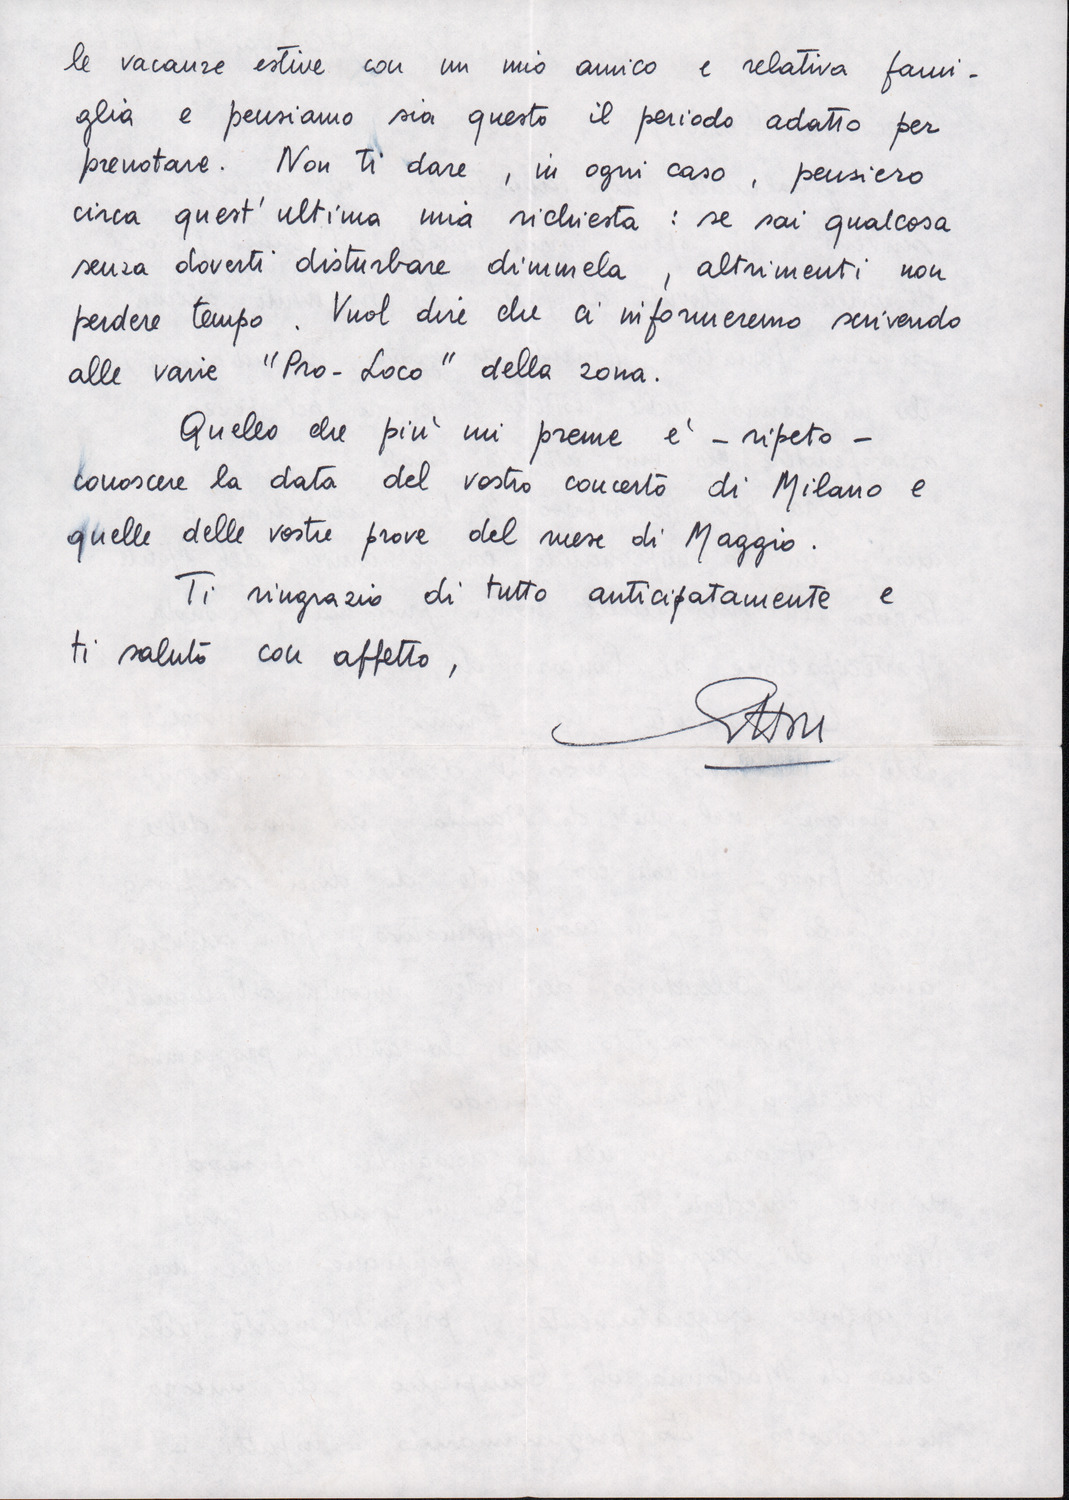 le vacanze estive con un mio amico e relativa fami-
glia e pensiamo sia questo il periodo adatto per
prenotare. Non ti dare, in ogni caso, pensiero
circa quest'ultima mia richiesta: se sai qualcosa
senza doverti disturbare dimmela, altrimenti non
perdere tempo. Vuol dire che ci informeremo scrivendo
alle varie "Pro-Loco" della zona.
Quello che più mi preme è - ripeto -
conoscere la data del vostro concerto di Milano e
quelle delle vostre prove del mese di Maggio.
Ti ringrazio di tutto anticipatamente e
ti saluto con affetto,